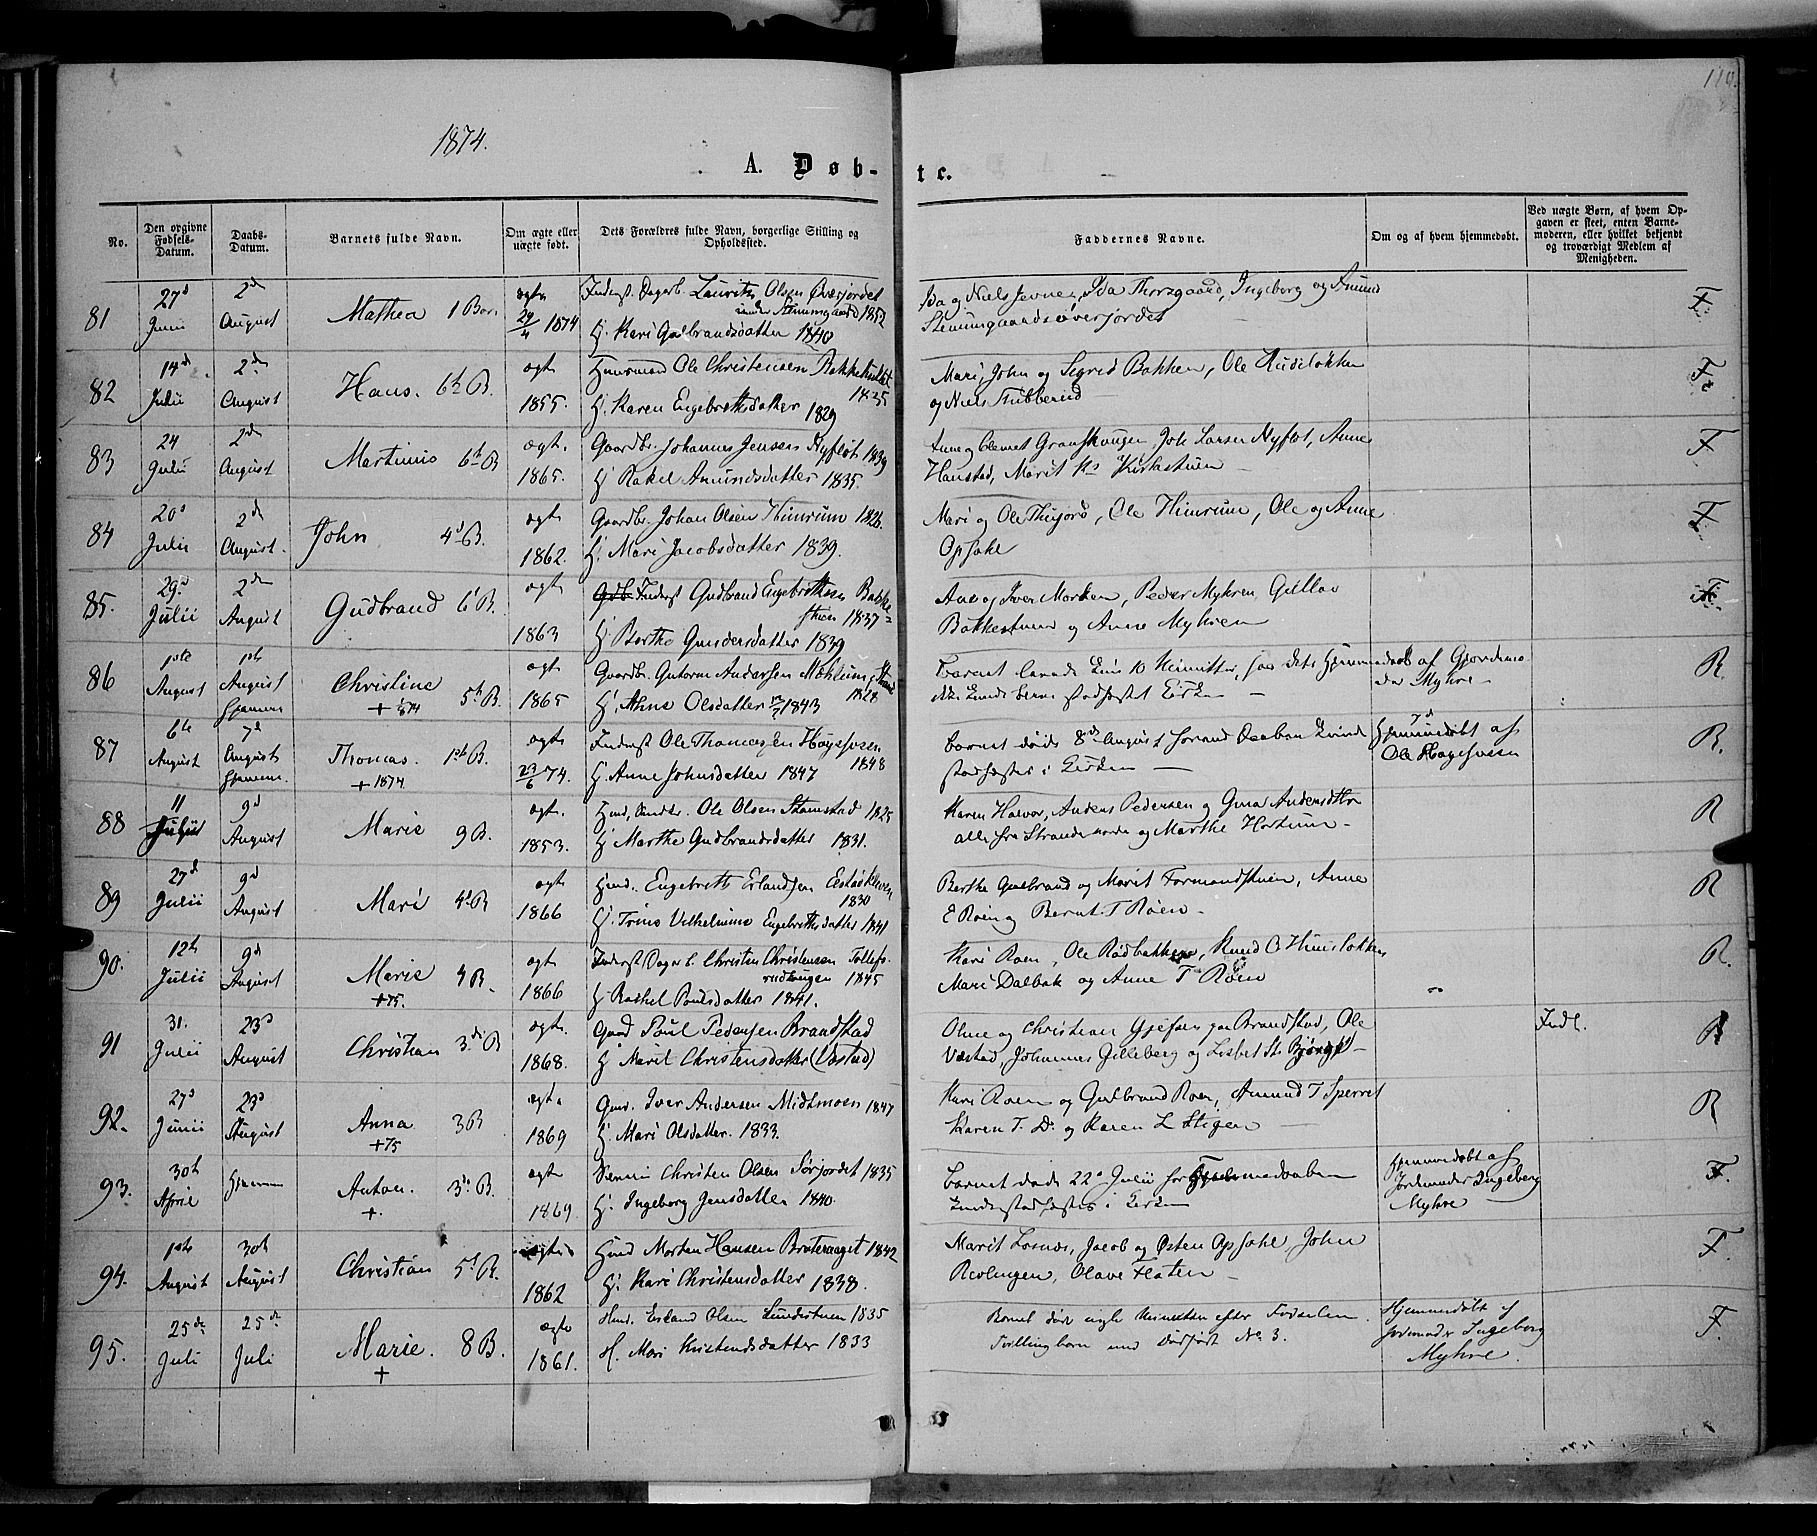 110.
1874.
A. Døb-
te.
No.
Den opgivne Fødsels-Datum.
Daabs-Datum.
Barnets fulde Navn.
Om ægte eller uægte født.
Dets Forældres fulde Navn, borgerlige Stilling og Opholdssted.
Faddernes Navne.
Om og af hvem hjemmedøbt.
Ved uægte Børn, af hvem Opgaven er skeet, enten Barnemoderen, eller hvilket bekjendt og troværdigt Medlem af Menigheden.
81 27d Juni 2den August Mathea 1 Barn ægte 29/4 1874
Inderst. Dagarb. Lauritz Olsen Øverjordet under Stenumgaard 1852
H. Kari Gulbrandsdatter 1840
Ida og Niels Jevne, Ida Thorsgaard, Ingeborg og Amund
Stenumgaardsøverjordet
F.
82 14d Julii 2den August Hans. 6te B. ægt 1855.
Huusmand Ole Christensen Bakke 1835
H. Karen Engebrethsdatter 1829
Mari, John og Sigrid Bakken, Ole
og Niels
F.
83 24 Julii 2den August Martinus 6te B ægt. 1865.
Gaardbr. Johannes Jensen Nyfløt 1839
H. Rakel Amundsdatter 1835.
Anne Clemet Granshaugen, Joh Larsen Nyfløt, Anne
Hanstad, Marit Kirkestuen
F
84 20d Julii 2den August. John 4d B. ægt 1862.
Gaardbr. Johan Olsen Himrum 1826
H. Mari Jacobsdatter 1839.
Mari og Ole, Ole Himrum, Ole og Anne
Opsahl
F
85. 29d Julii 2den August Gudbrand 6 B. ægt 1863
Gdb. Inderst Gudbrand Engebrethsen Bakkestuen 1837
H. Berthe Gundersdatter 1839
Ane og Iver Morken, Peder Myhren, Gullov
Bakkestuen og Anne Myhren
F.
86 1ste August 1ste August Hjemme Christine + 1/8 74 5te B. ægt 1865
Gaardbr. Gutorm Andersen Mohlum 1828
H. Ahne Olsdatter 1843
Barnet levede kun 10 Minutter, saa dets Hjemmedaab
ikke kunde blive stadfæstet i Kirken
af Gjordemoder Myhre
R.
87 6te August 7d August Hjemme Thomas. + 1874 1ste B. ægt 23/6 74.
Inderst Ole Thomassen Hagesveen 1848
H. Anne Johnsdatter 1847
Barnet døde 8de August forend Daaben kunde
stadfæstes i Kirken
7d Hjemmedøbt af
Ole Hagesveen
R.
88 11 Julii 9d August Marie 9 B. ægt. 1853.
Ole Olsen Stamstad 1825
H. Marthe Gudbrandsdatter 1831.
Karen Halvor, Anders Pedersen og Gina Andersdtr
alle fra Strande og Marthe Hortum
R
89 27d Julii 9d August Mari 4d B ægt 1866
Husd. Engebreth Erlandsen 1830
H. Trine Vilhelmine Engebrethsdatter 1841
Berthe Gulbrand og Marit Formandstuen, Anne
E Roen og Bernt T Røen
R
90. 12te Julii 9d August Marie +75. 4 B. ægt 1866
Inderst Dagarb. Christen Christensen Tollefsrudhaugen 1845
H. Rachel Poulsdatter 1841.
Kari Roen, Ole Rødbakken, Knud C. Huusløkken
Mari Dalbak og Anne T Røen
R.
91 31. Julii 23d August Christian 3die B ægt. 1868.
Gaard Poul Pedersen Brandstad
H Marit Christensdatter (Væstad)
Oline og Christian Gjefsen paa Brandstad, Ole
Væstad, Johannes Gilleberg og Lisbet
Indl.
R
92. 27d Junii 23d August Anna +75 3 B ægt. 1869
Iver Andersen Midtmoen 1847
H. Mari Olsdatter. 1833.
Kari Roen og Gulbrand Roen, Amund T Sperret
Karen T. D. og Karen L Stigen
R
93. 30te April Hjemme Anton. + 3die B. ægt 1869.
Christen Olsen Sørjordet 1835
H. Ingeborg Jensdatter 1840.
Barnet døde 22d Julii for Hjemmedaaben
kunde stadfæstes i Kirken
Hjemmedøbt af
Jordemoder Ingeborg
Myhre
F.
94. 1ste August 30te August Christian 5te B. ægte 1862
Husd Morten Hansen Braternaget 1842
H. Kari Christensdatter 1838.
Marit Losnæs, Jacob og Østen Opsahl, John
Revlingen, Olave Flaten
F.
95. 25de Juli 25de Juli Marie. + 8 B. ægte 1861.
Husd. Erland Olsen Lundestuen 1835
H. Mari Kristensdatter 1833
Barnet døde nogle Minutter efter Fødselen.
Tvillingbarn med Dødfødt No 3.
Hjemmedøbt af
Jordmoder Ingeborg
Myhre.
F.